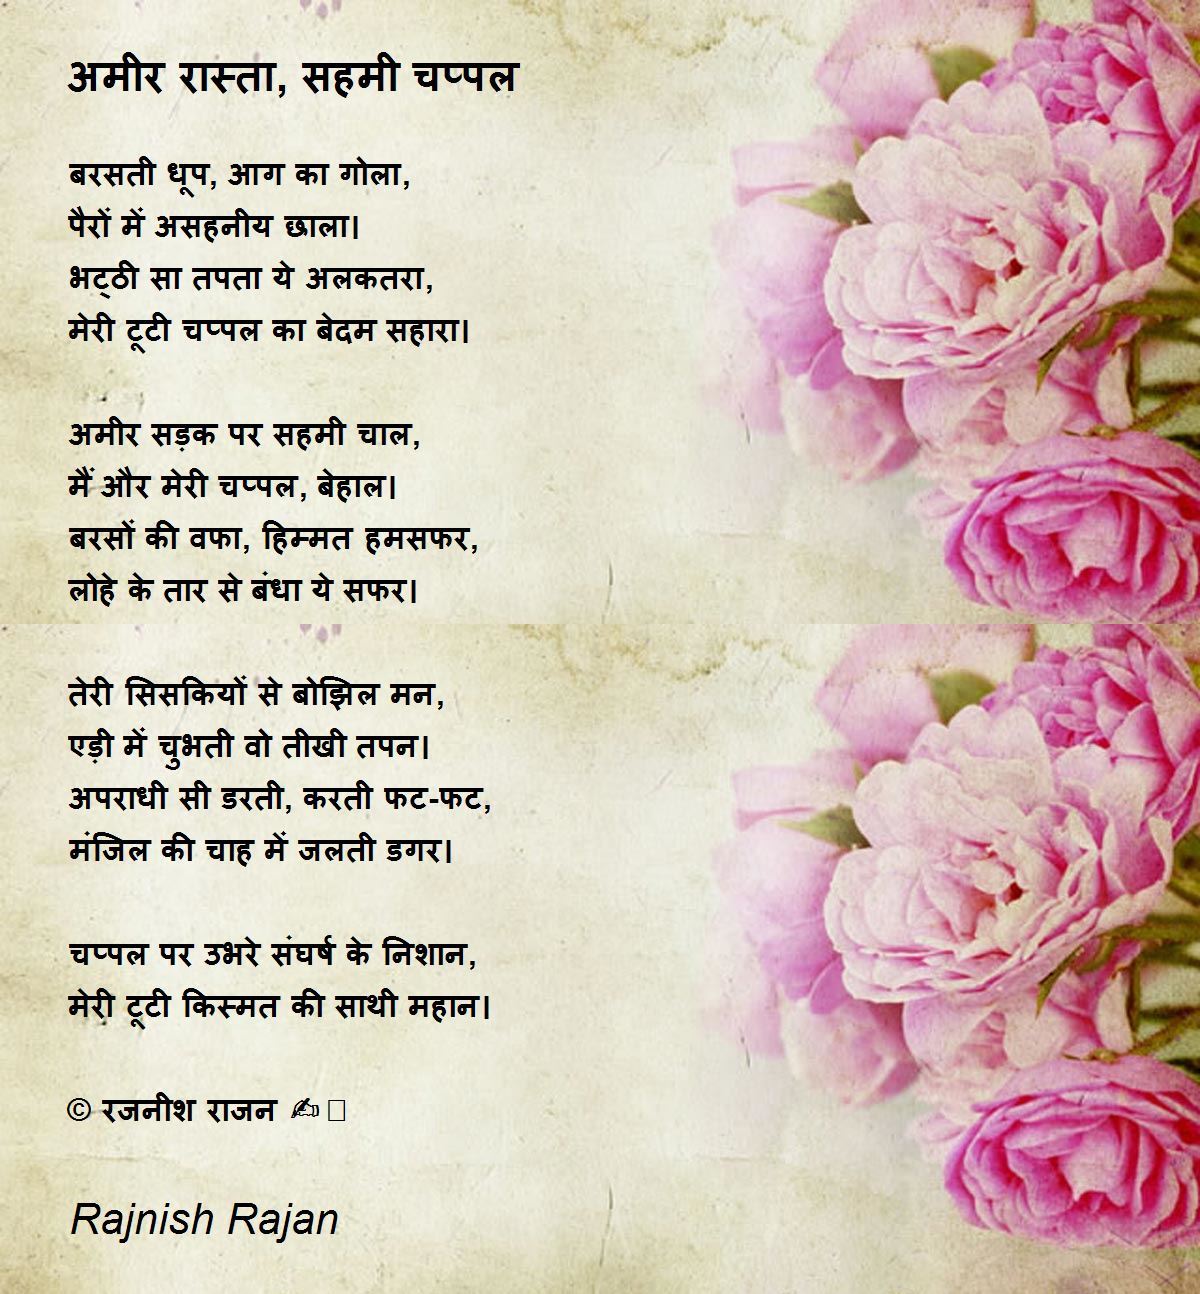 अमीर रास्ता, सहमी चप्पल
बरसती धूप, आग का गोला,
पैरों में असहनीय छाला।
भट्ठी सा तपता ये अलकतरा,
मेरी टूटी चप्पल का बेदम सहारा।
अमीर सड़क पर सहमी चाल,
मैं और मेरी चप्पल, बेहाल।
बरसों की वफा, हिम्मत हमसफर,
लोहे के तार से बंधा ये सफर।
तेरी सिसकियों से बोझिल मन,
एड़ी में चुभती वो तीखी तपन।
अपराधी सी डरती, करती फट-फट,
मंजिल की चाह में जलती डगर।
चप्पल पर उभरे संघर्ष के निशान,
मेरी टूटी किस्मत की साथी महान।
© रजनीश राजन ✍
Rajnish Rajan